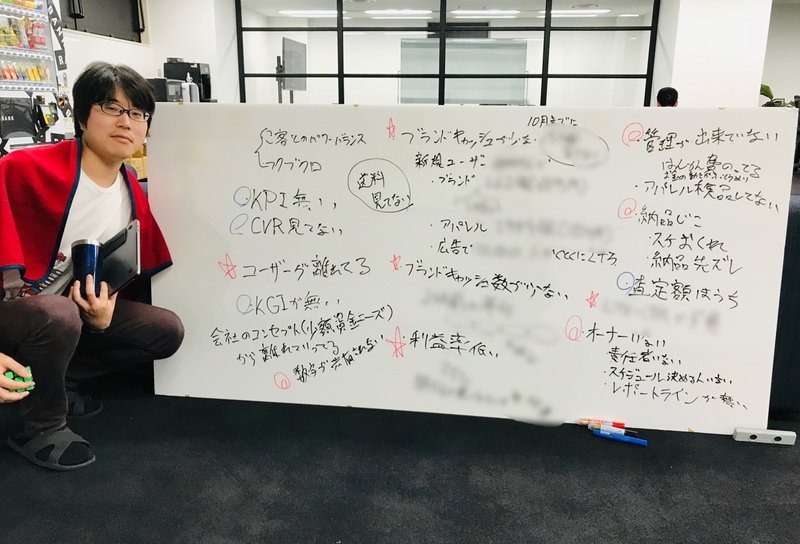 客とのパワーバランス
フクブクロ
送料
見てない
KPI無い
CVR見てない
ユーザーグ離れてる
KGIが無い
会社のコンセプト(少額資金ニーズ)
から離れていってる
数字が共有されない
10月までに
ブランドキャッシュが少な
新規ユーザ
・ブランド
・アパレル
・広告で
ブランドキャッシュ数が少ない
利益率低い
管理が出来ていない
はんかん費のってる
・アパレル検品してない
納品じこ
スケおくれ
・納品先ズレ
査定額ほうち
オーナーいない
責任者いない
・スケジュール決める人いない
・レポートラインが無い